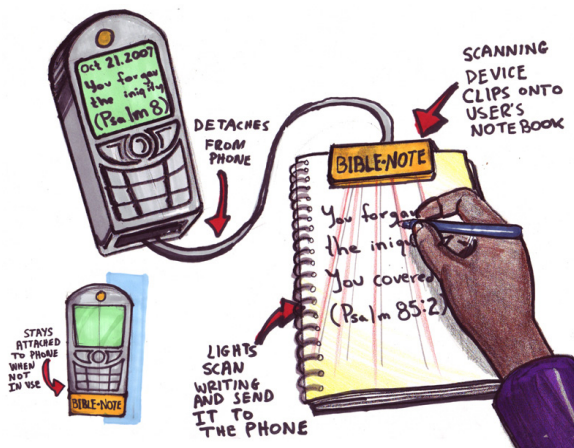 Oct 21.2007
You forgav
the iniqity
(Psalm 8)
DETACHES
FROM
PHONE
SCANNING
DEVICE
CLIPS ONTO
USER'S
NOTEBOOK
BIBLE-NOTE
You forgav
the iniq
You covered
(Psalm 85:2)
STAYS
ATTACHED
TO PHONE
WHEN
NOT
IN USE
BIBLE-NOTE
LIGHTS
SCAN
WRITING
AND SEND
IT TO
THE PHONE